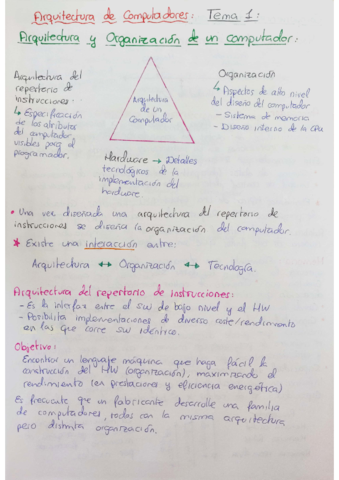 Arquitectura de Computadores: Tema 1:
Arquitectura y Organización de un computador:
Arquitectura del
repertorio de
instrucciones:
↳ Especificación
de los atributos
del computador
visibles para el
programador.
Arquitectura
de un
Computador
Organización
↳ Aspectos de alto nivel
del diseño del computador
- Sistema de memoria
- Diseño interno de la CPU
Hardware → Detalles
tecnológicos de la
implementación del
hardware
* Una vez diseñada una arquitectura del repertorio de
instrucciones se diseña la organización del computador.
* Existe una interacción entre:
Arquitectura ↔ Organización ↔ Tecnología.
Arquitectura del repertorio de instrucciones:
- Es la interfaz entre el SW de bajo nivel y el HW
- Posibilita implementaciones de diverso coste/rendimiento
en las que corre SW idéntico.
Objetivo:
Encontrar un lenguaje máquina que haga fácil la
construcción del HW (organización), maximizando el
rendimiento (en prestaciones y eficiencia energética)
Es frecuente que un fabricante desarrolle una familia
de computadores, todos con la misma arquitectura
pero distinta organización.